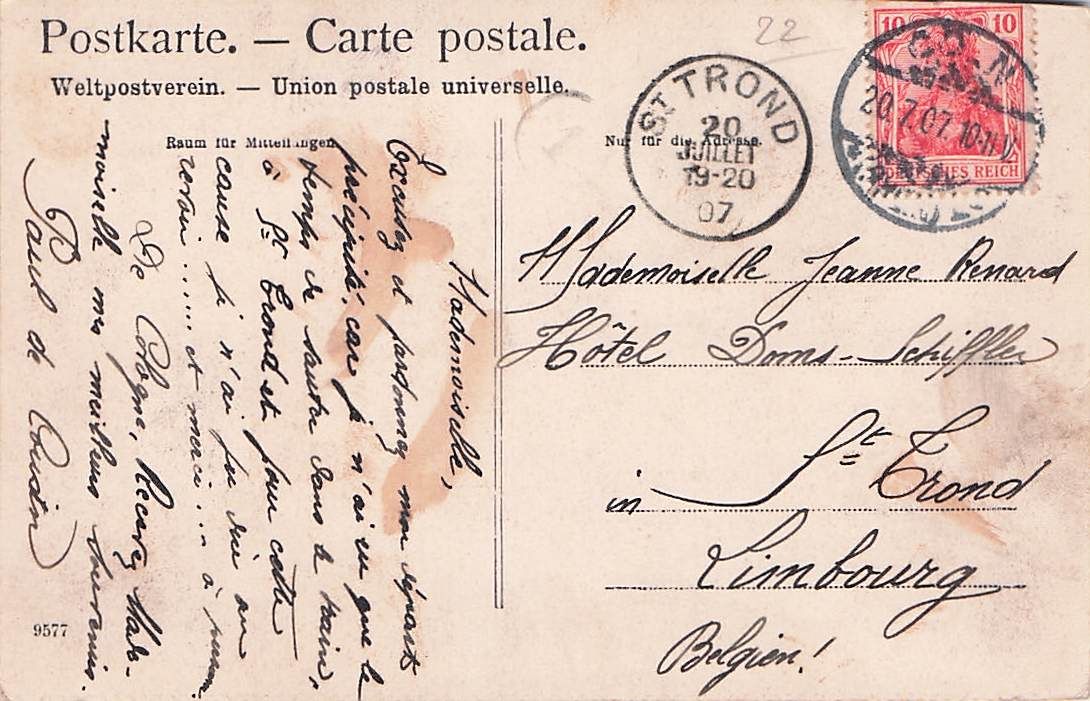 Postkarte. — Carte postale.
Weltpostverein. — Union postale universelle.
22
Raum für Mitteilungen
Nur für die Adresse.
ST TROND
20
JUILLET
19-20
07
10 10
DEUTSCHES REICH
CÖLN
20.7.07.10-11V
Mademoiselle,
Excusez et pardonnez mon départ
précipité, car je n'ai eu que le
temps de sauter dans le train,
à St Trond et pour cette
cause je n'ai pu rien au
revoir ..... et merci ... à
De Cologne, Recevez Made-
moiselle mes meilleurs souvenirs.
Paul de
Mademoiselle Jeanne Renard
Hôtel Doms-Schiffler
in St Trond
Limbourg
Belgien!
9577